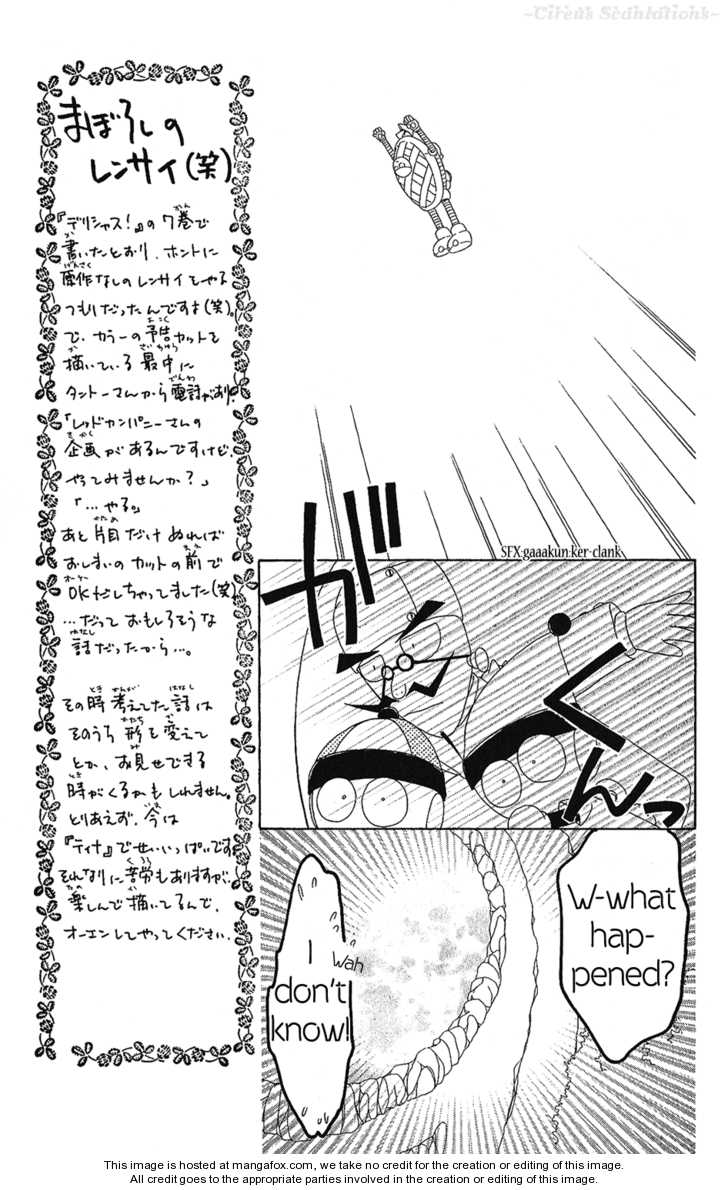 ~Circus Scanlations~
まぼろしの
レンサイ(笑)
『デリシャス!』の7巻で
書いたとおり、ホントに
原作なしのレンサイをやる
つもりだったんですよ(笑)。
で、カラーの予告カットを
描いている最中に
タントーさんから電話があり!
「レッドカンパニーさんの
企画があるんですけど、
やってみませんか?」
「…やる。」
あと片目だけぬれば
おしまいのカットの前で
OKだしちゃってました(笑)
…だっておもしろそうな
話だったから…。
その時考えてた話は
そのうち形を変えて
とか、お見せできる
時がくるかもしれません。
とりあえず、今は
『ティナ』でせいいっぱいです。
それなりに苦労もありますが、
楽しんで描いてるんで、
オーエンしてやってください。
SFX:gaaakun:ker-clank
ガ
くんっ
W-what
hap-
pened?
Wah
I
don't
know!
This image is hosted at mangafox.com, we take no credit for the creation or editing of this image.
All credit goes to the appropriate parties involved in the creation or editing of this image.